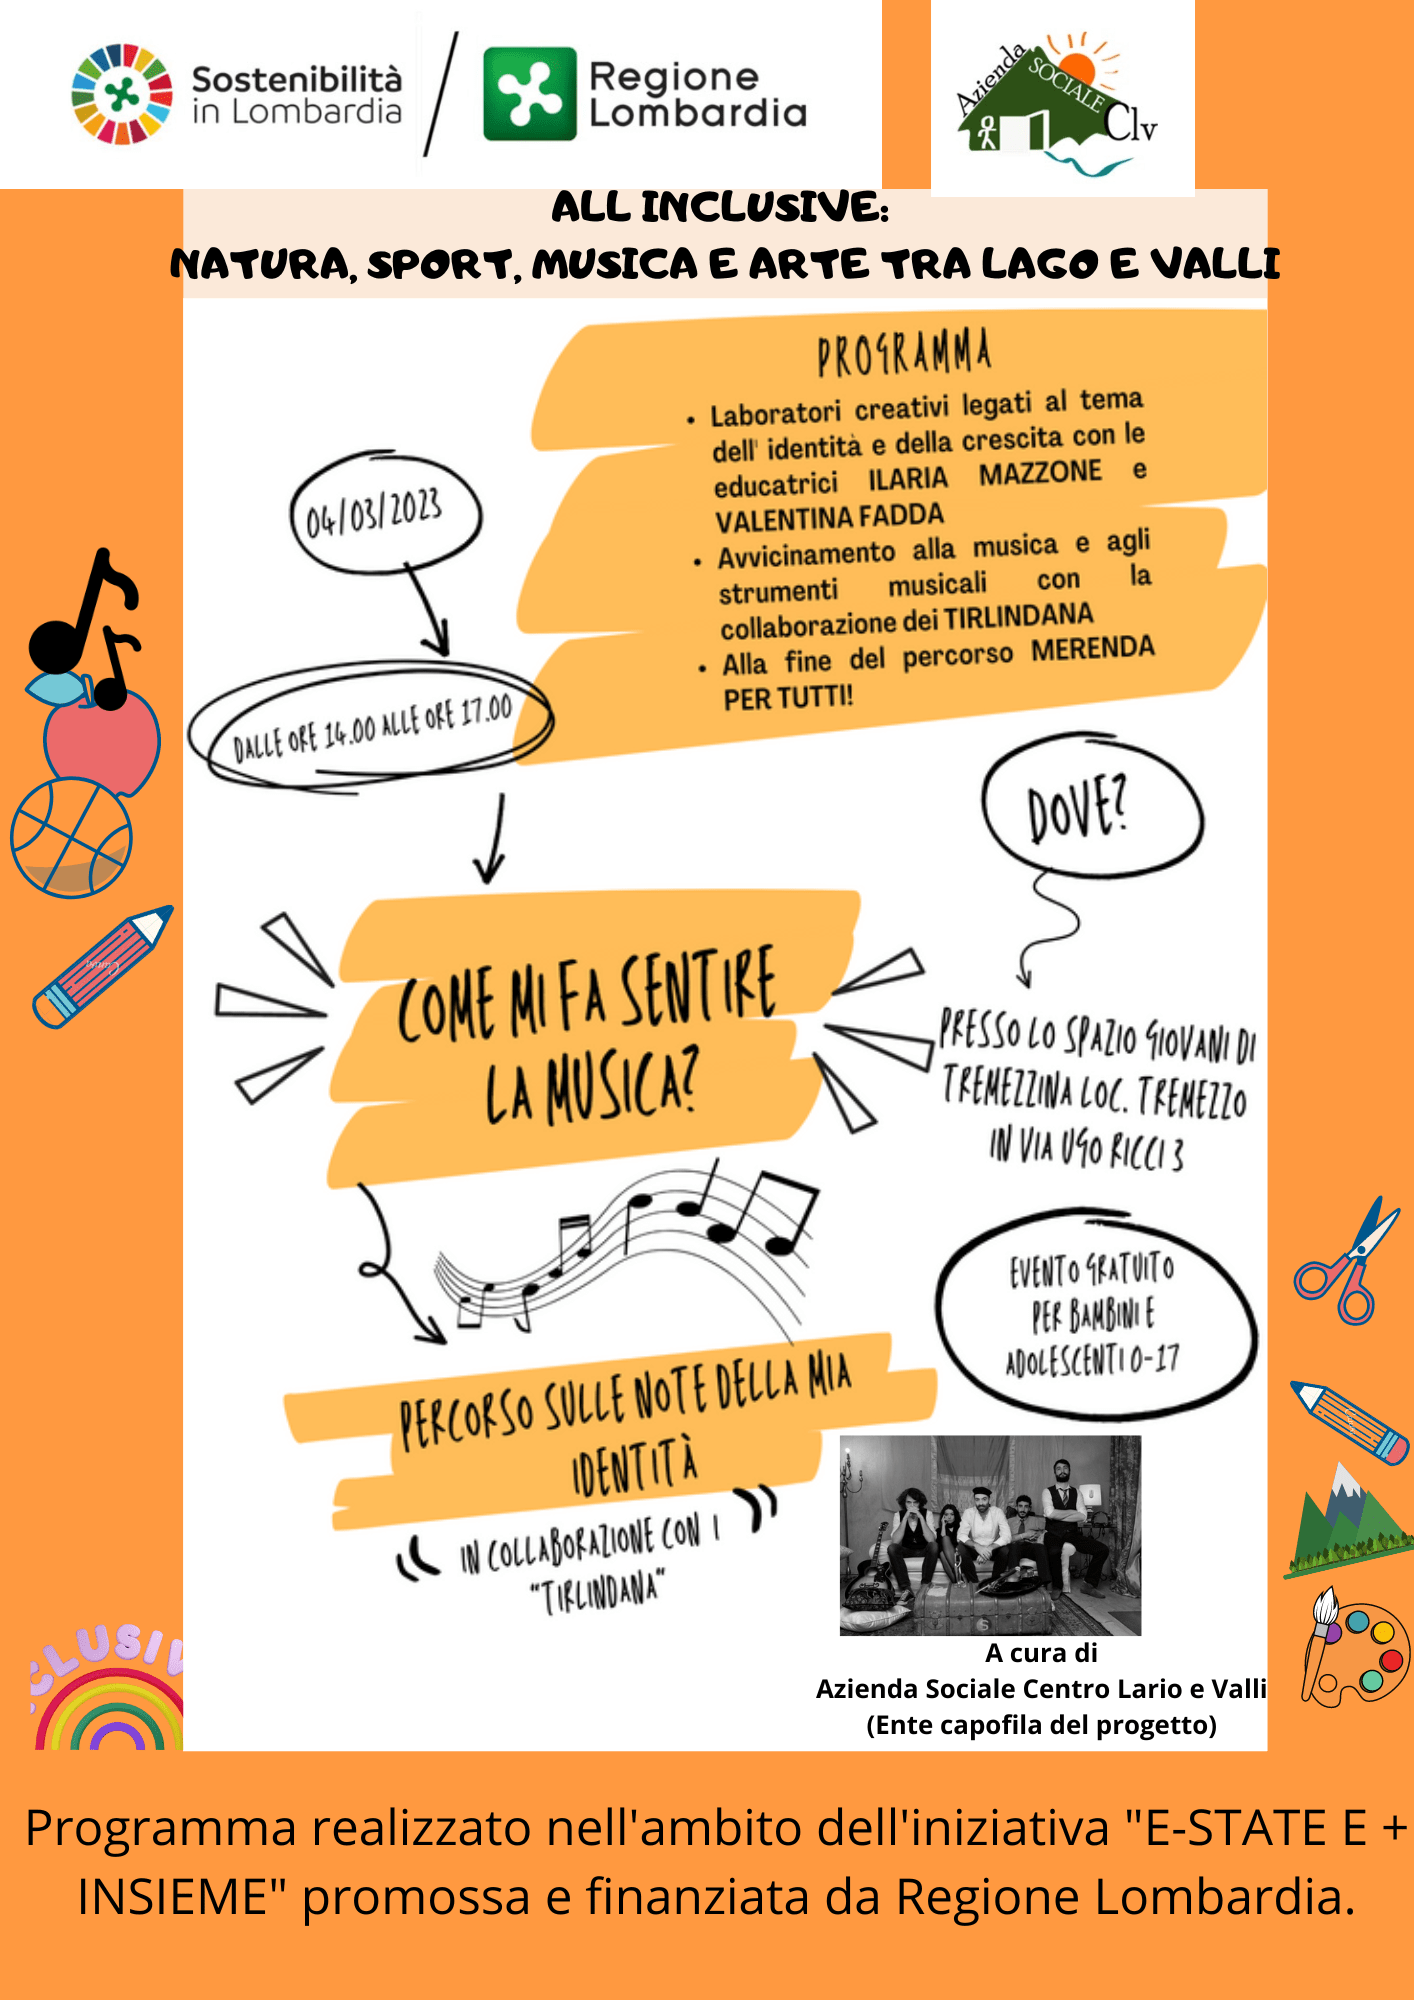 Sostenibilità
in Lombardia
Regione
Lombardia
Azienda
SOCIALE
Clv
ALL INCLUSIVE:
NATURA, SPORT, MUSICA E ARTE TRA LAGO E VALLI
PROGRAMMA
• Laboratori creativi legati al tema
dell' identità e della crescita con le
educatrici ILARIA MAZZONE e
VALENTINA FADDA
• Avvicinamento alla musica e agli
strumenti musicali con la
collaborazione dei TIRLINDANA
• Alla fine del percorso MERENDA
PER TUTTI!
04/03/2023
DALLE ORE 14.00 ALLE ORE 17.00
DOVE?
PRESSO LO SPAZIO GIOVANI DI
TREMEZZINA LOC. TREMEZZO
IN VIA UGO RICCI 3
COME MI FA SENTIRE
LA MUSICA?
EVENTO GRATUITO
PER BAMBINI E
ADOLESCENTI 0-17
PERCORSO SULLE NOTE DELLA MIA
IDENTITÀ
IN COLLABORAZIONE CON I
"TIRLINDANA"
CLUSIV
A cura di
Azienda Sociale Centro Lario e Valli
(Ente capofila del progetto)
Programma realizzato nell'ambito dell'iniziativa "E-STATE E +
INSIEME" promossa e finanziata da Regione Lombardia.